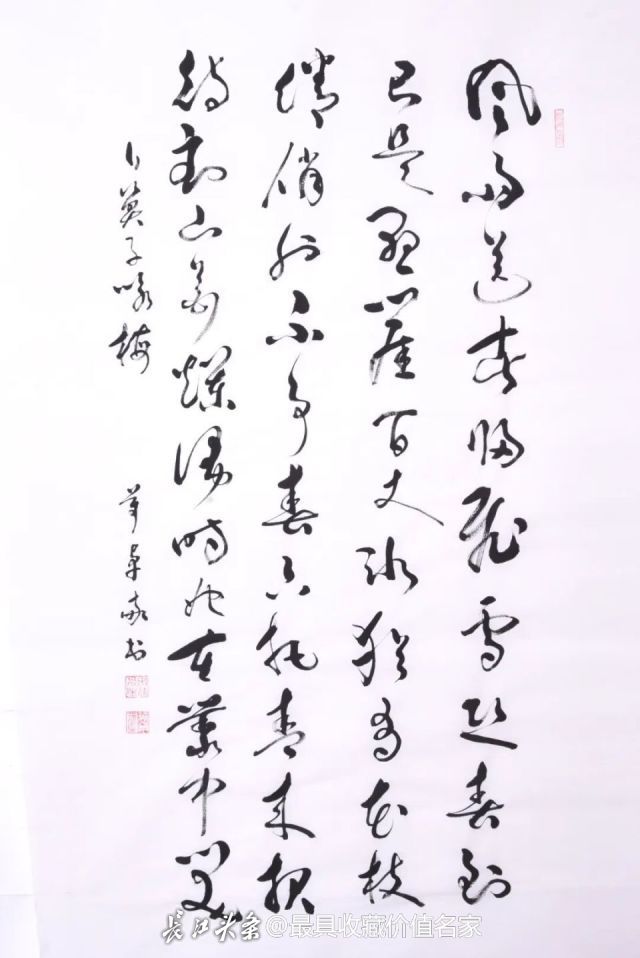 風雨送春歸飛雪迎春到
已是懸崖百丈冰猶有花枝
俏俏也不争春只把春来报
待到山花爛漫時她在叢中笑
卜算子咏梅
书
长江头条 @最具收藏价值名家